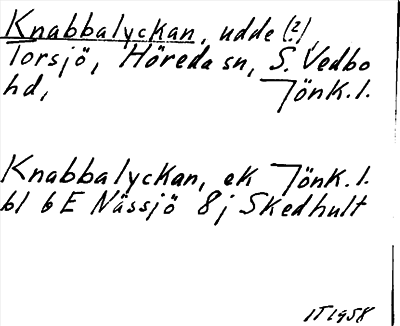 Knabbalyckan, udde (?),
Torsjö, Höreda sn, S. Vedbo
hd, Jönk. l.
Knabbalyckan, ek Jönk. l.
bl 6 E Nässjö 8j Skedhult
IT 1958